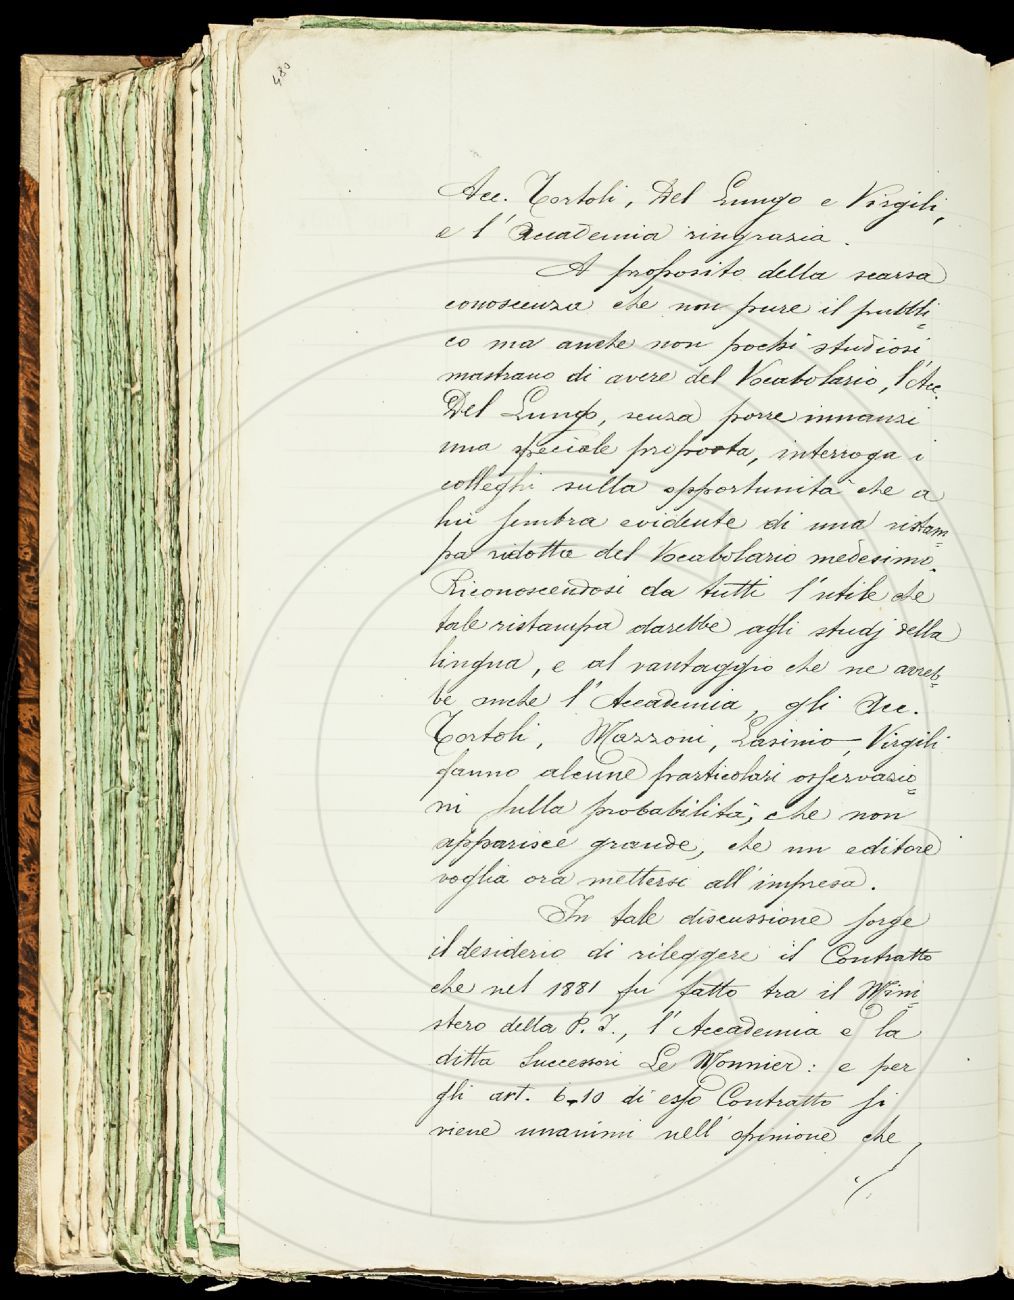 480
Acc. Tortoli, Del Lungo e Virgili,
e l'Accademia ringrazia.
A proposito della scarsa
conoscenza che non pure il pubbli=
co ma anche non pochi studiosi
mostrano di avere del Vocabolario, l'Acc.
Del Lungo, senza porre innanzi
una speciale proposta, interroga i
colleghi sulla opportunità che a
lui sembra evidente di una ristam=
pa ridotta del Vocabolario medesimo.
Riconoscendosi da tutti l'utile che
tale ristampa darebbe agli studj della
lingua, e al vantaggio che ne avreb=
be anche l'Accademia, gli Acc.
Tortoli, Mazzoni, Lasinio, Virgili
fanno alcune particolari osservazio=
ni sulla probabilità, che non
apparisce grande, che un editore
voglia ora mettersi all'impresa.
In tale discussione sorge
il desiderio di rileggere il Contratto
che nel 1881 fu fatto tra il Mini=
stero della P. I., l'Accademia e la
ditta Successori Le Monnier: e per
gli art. 6-10 di esso Contratto si
viene unanimi nell'opinione che